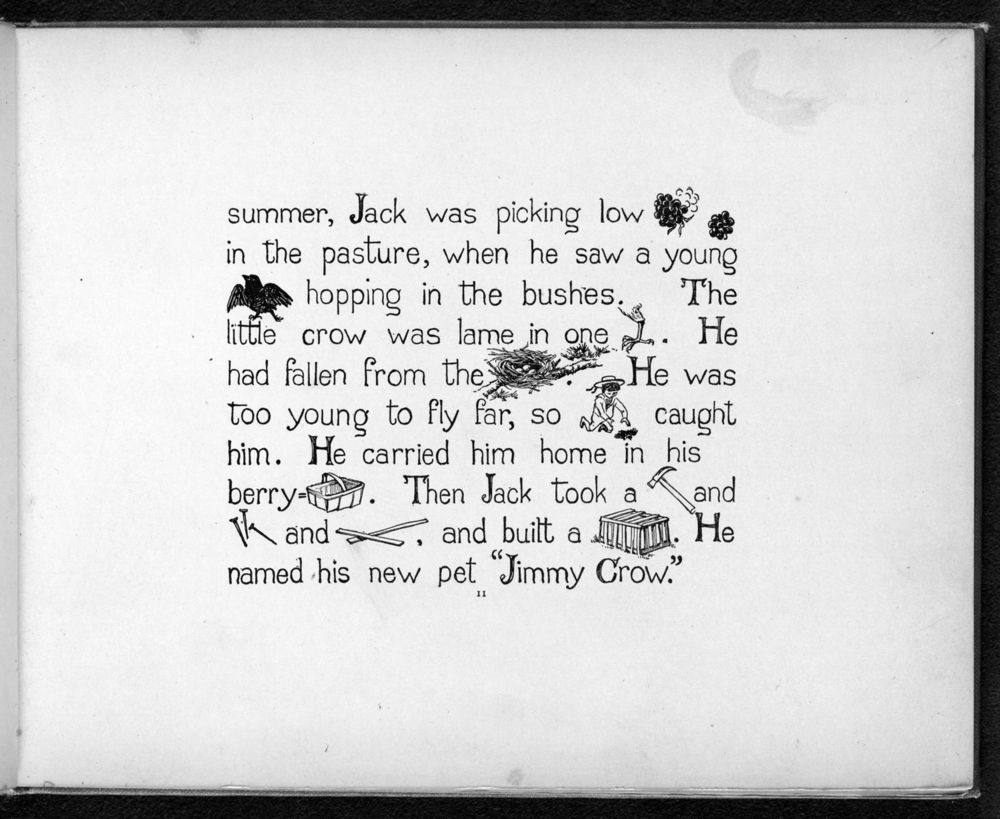 summer, Jack was picking low
in the pasture, when he saw a young
hopping in the bushes. The
little crow was lame in one . He
had fallen from the . He was
too young to fly far, so caught
him. He carried him home in his
berry= . Then Jack took a and
and , and built a . He
named his new pet "Jimmy Crow."
11